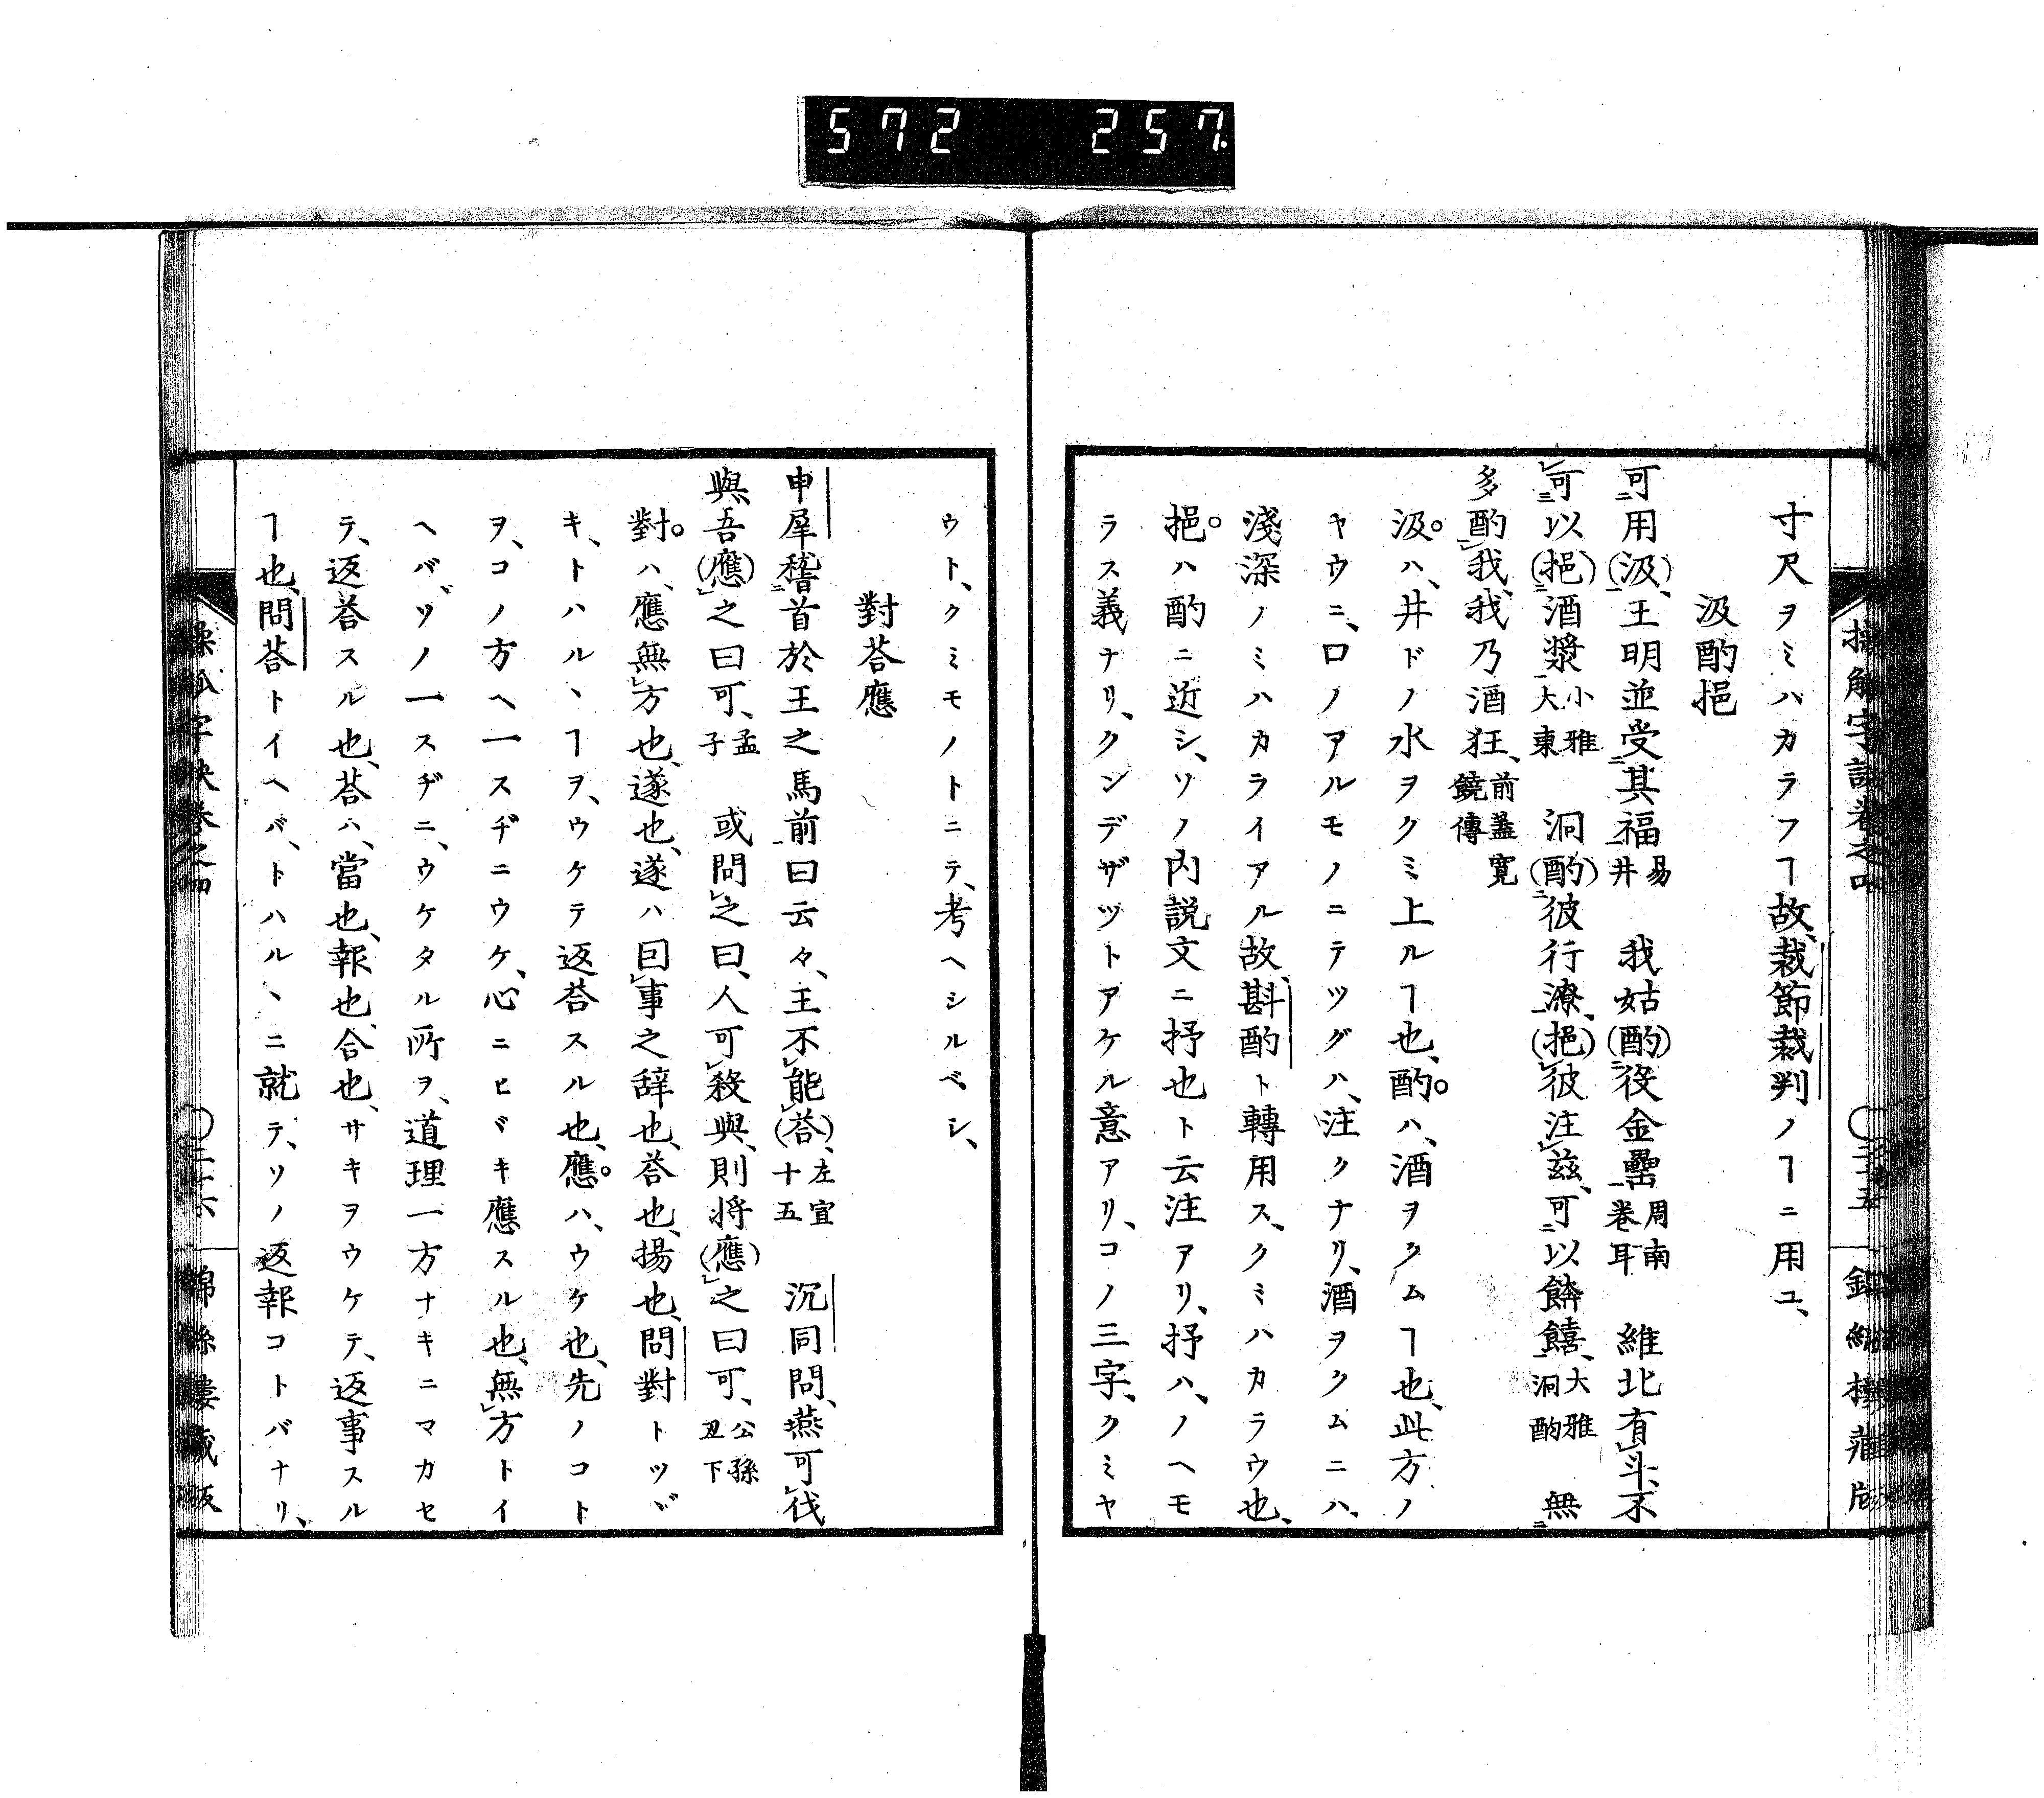 572 257.
寸尺ヲミハカラフヿ故、裁節裁判ノヿニ用ユ、
汲酌挹
可㆓用(汲)㆒、王明並受㆓其福㆒易井 我姑(酌)㆓彼金罍㆒周南卷耳 維北有㆑斗、不
㆑可㆔以(挹)㆓酒漿㆒小雅大東 泂(酌)㆓彼行潦㆒、(挹)㆑彼注㆑茲、可㆓以餴饎㆒、大雅泂酌 無㆔
多酌㆑我、我乃酒狂、前蓋寬饒傳
汲。ハ、井ドノ水ヲクミ上ルヿ也、酌。ハ、酒ヲクムヿ也、此方ノ
ヤウニ、口ノアルモノニテツグハ、注クナリ、酒ヲクムニハ、
淺深ノミハカライアル故、斟酌ト轉用ス、クミハカラウ也、
挹。ハ酌ニ近シ、ソノ內説文ニ抒也ト云注アリ、抒ハ、ノヘモ
ラス義ナリ、クンデザツトアケル意アリ、コノ三字、クミヤ
ウト、クミモノトニテ、考ヘシルベシ、
對荅應
申犀稽㆓首於王之馬前㆒曰云々、王不㆑能㆑(荅)、左宣十五 沉同問、燕可㆑伐
與、吾(應)㆑之曰可、孟子 或問㆑之曰、人可㆑殺與、則將(應)㆑之曰可、公孫丑下
對。ハ、應無㆑方也、遂也、遂ハ囘㆑事之辭也、荅也、揚也、問對トツヾ
キ、トハルヽヿヲ、ウケテ返荅スル也、應。ハ、ウケ也、先ノコト
ヲ、コノ方ヘ一スヂニウケ、心ニヒヾキ應スル也、無㆑方トイ
ヘバ、ソノ一スヂニ、ウケタル所ヲ、道理一方ナキニマカセ
テ、返荅スル也、荅ハ、當也、報也、合也、サキヲウケテ、返事スル
ヿ也、問荅トイヘバ、トハルヽニ就テ、ソノ返報コトバナリ、
操觚字訣卷之四
錦絲樓藏版